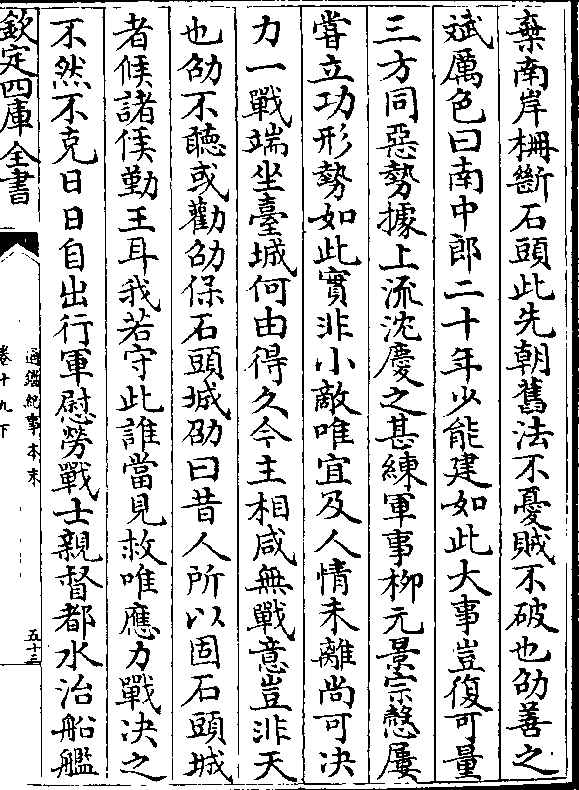 棄南岸柵斷石頭此先朝舊法不憂賊不破也劭善之
斌厲色曰南中郎二十年少能建如此大事豈復可量
三方同惡勢據上流沈慶之甚練軍事柳元景宗慤屢
嘗立功形勢如此實非小敵唯宜及人情未離尚可決
力一戰端坐臺城何由得久今主相咸無戰意豈非天
也劭不聽或勸劭保石頭城劭曰昔人所以固石頭城
者候諸侯勤王耳我若守此誰當見救唯應力戰决之
不然不克日日自出行軍慰勞戰士親督都水治船艦
欽定四庫全書
通鑑紀事本末
卷十九下
五十三